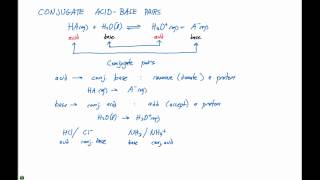 CONJUGATE ACID-BASE PAIRS
HA(aq) + H₂O(l) ⇌ H₃O⁺(aq) + A⁻(aq)
acid base acid base
Conjugate pairs
acid → conj. base : remove (donate) a proton
HA(aq) → A⁻(aq)
base → conj. acid : add (accept) a proton
H₂O(l) → H₃O⁺(aq)
HCl / Cl⁻ NH₃ / NH₄⁺
acid conj. base base conj. acid